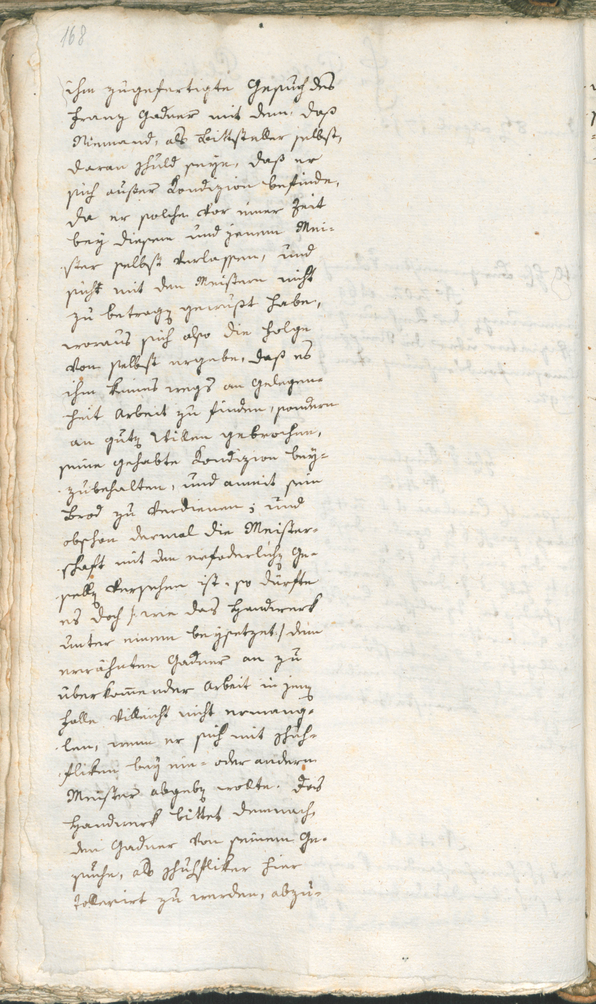 168
ihm zugefertigte Gesuch des
Franz Gadner mit dem, daß
Niemand, als Bittsteller selbst,
daran schuld seye, daß er
sich außer Kondizion befinde,
da er solche vor einer Zeit
bey diesem und jenem Mei-
ster selbst verlassen, und
sich mit den Meistern nicht
zu betragen gewußt habe,
woraus sich also die Folge
von selbst ergebe, daß es
ihm keines wegs an Gelegen-
heit Arbeit zu finden, sondern
an guten Willen gebrochen,
seine gehabte Kondizion bey-
zubehalten, und anmit sein
Brod zu verdienen; und
obschon dermal die Meister-
schaft mit den erfoderlichen Ge-
sellen versehen ist, so dürfte
es doch /: wie das Handwerk
unter einem beysetzet :/ dem
erwähnten Gadner an zu
überkommender Arbeit in jenem
Falle villeicht nicht ermang-
len, wenn er sich mit Schuh-
fliken bey ein- oder anderm
Meister abgeben wolte. Das
Handwerk bittet demnach,
den Gadner von seinem Ge-
suche, als Schuhfliker hier
tollerirt zu werden, abzu-